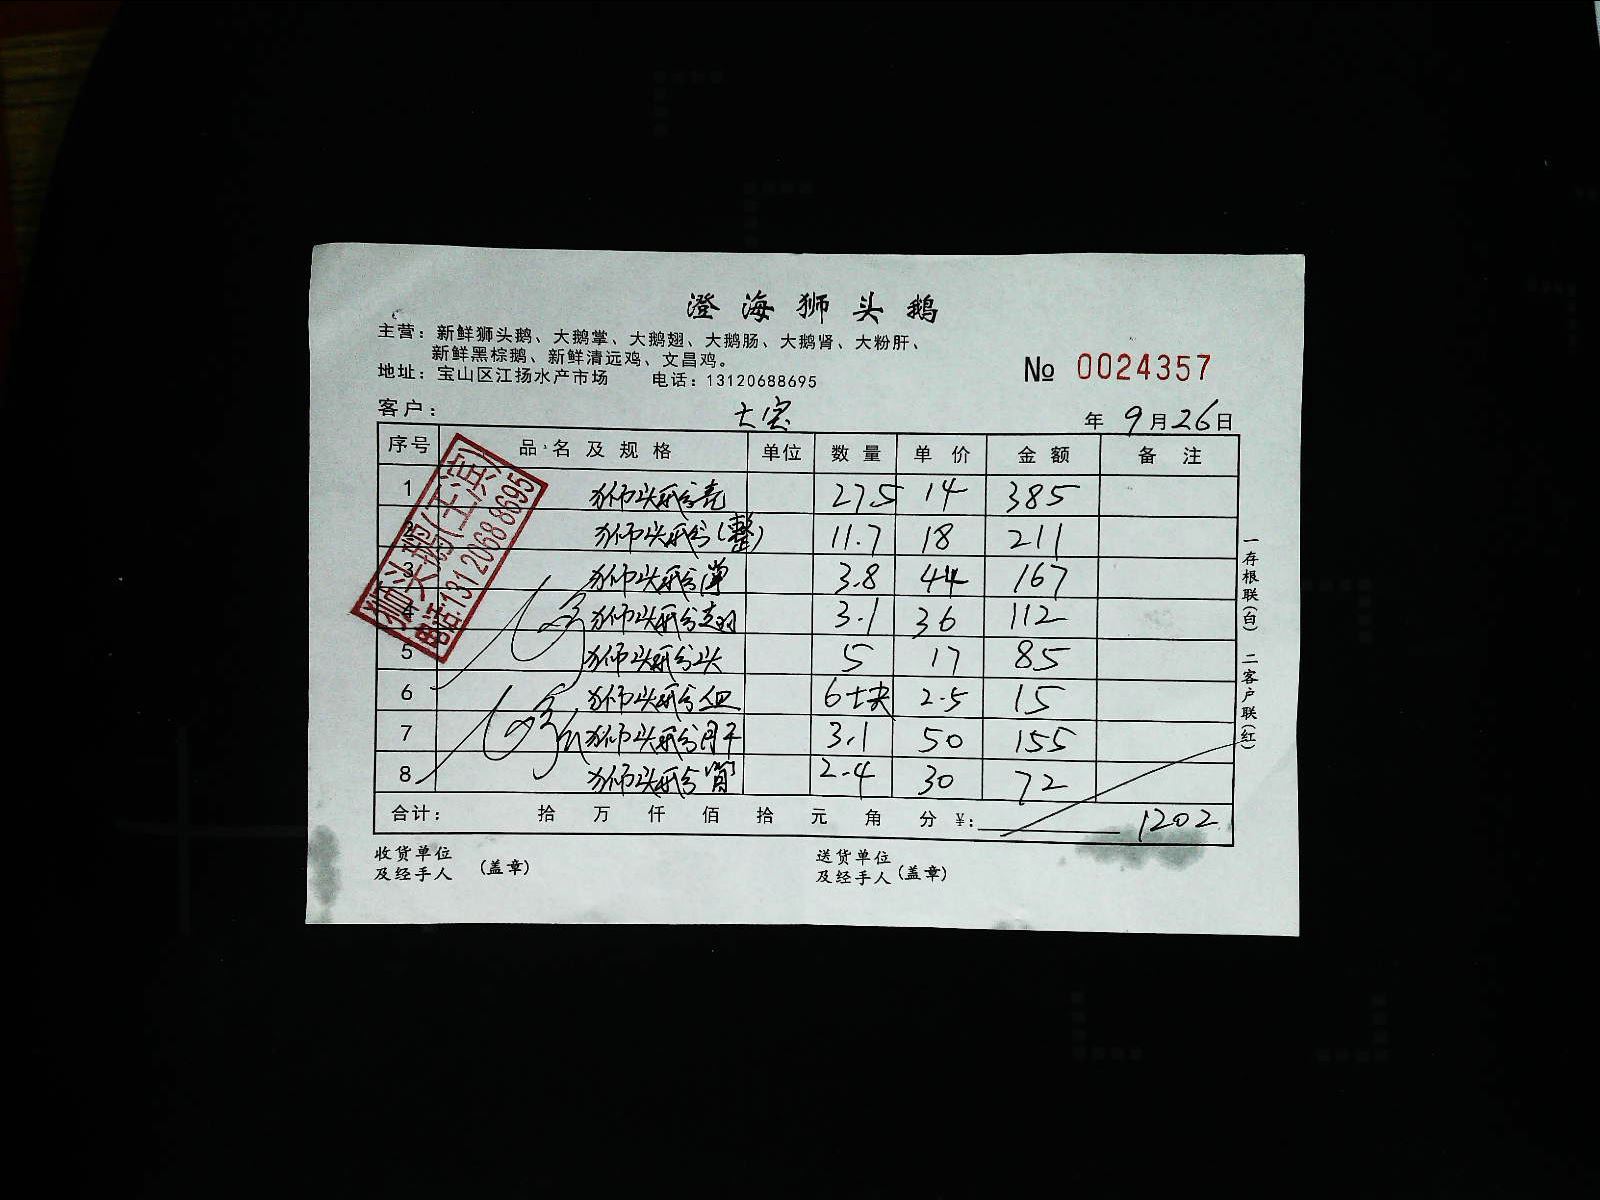 澄海狮头鹅
主营：新鲜狮头鹅、大鹅掌、大鹅翅、大鹅肠、大鹅肾、大粉肝、
新鲜黑棕鹅、新鲜清远鸡、文昌鸡。
地址：宝山区江扬水产市场 电话：13120688695
№ 0024357
客户： 大宝 年 9 月 26 日
序号 品名及规格 单位 数量 单价 金额 备注
1 狮头鹅壳 27.5 14 385
2 狮头鹅(整) 11.7 18 211
3 狮头鹅掌 3.8 44 167
4 狮头鹅翅 3.1 36 112
5 狮头鹅头 5 17 85
6 狮头鹅血 6块 2.5 15
7 狮头鹅肝 3.1 50 155
8 狮头鹅肾 2.4 30 72
合计： 拾 万 仟 佰 拾 元 角 分 ¥: 1202
收货单位
及经手人 (盖章)
送货单位
及经手人 (盖章)
一存根联(白) 二客户联(红)
狮头鹅(王滨)
电话:13120688695